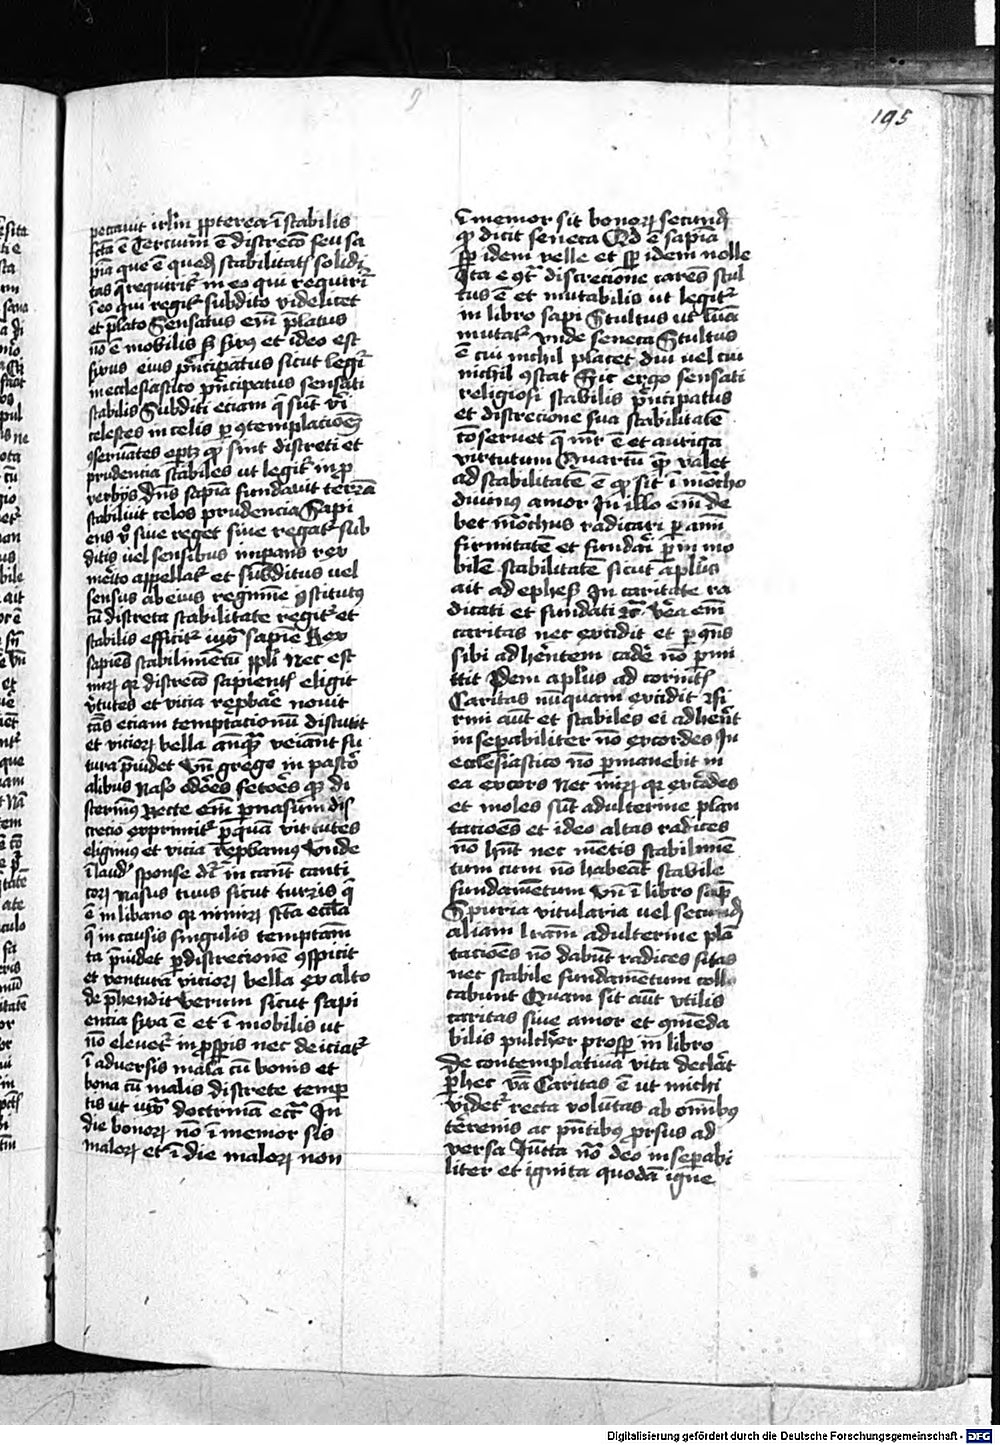 195
peccauit irl̄m ꝓpterea ī stabilis
fc̄ta ē Tercium ē discreco᷑ seu sa
pia que ē quedā stabilitatꝭ solidi
tas q̄ requirit᷑ in eo qui requirit᷑
ī eo qui regit᷑ subdito videlicet
et p̄lato Sensatus em̄ p̄latus
nō ē mobilis sꝫ firmꝰ et ideo est
firmus eius p̄ncipatus sicut legit᷑
in ecclesiastico p̄ncipatus sensati
stabilis Subditi eciam q̄ sūt
celestes in celis p ꝯtemplacionē
ꝯseruātes ꝙ sint discreti et
prudencia stabiles ut legit᷑ in ꝓ
verbijs Dn̄s sapīa fundauit terrā
stabiliuit celos prudencia Sapi
ens v̊ siue reget siue regat᷑ sub
ditis uel sensibus imp̄ans rex
merito appellat᷑ et subditus uel
sensus ab eius regimine ꝯstitutꝰ
cū discreta stabilitate regit᷑ et
stabilis efficit᷑ Rex
sapiens stabilimētū ppl̄i Nec est
mirꝝ qr discreco᷑ sapientꝭ eligit
v̄tutes et vicia rep̄bare nouit
cās eciam temptacionū discutit
et vicioꝝ bella anq̄ᷓ veiānt fu
tura p̄uidet Vn̄ grego in pastor
alibus Naso odōes fetōes ꝙ di
scernimꝰ Recte em̄ p nasum dis
crecio exprimit᷑ p quā virtutes
eligimꝰ et vicia rep̄bamꝰ Vnde
ī laudē sponse dr̄ in cant canti
coꝝ Nasus tuus sicut turris q̄
ē in libano qr nimirꝝ sc̄ta ecc̄lia
q̄ in causis singulis temptam̄
ta p̄uidet p discrecionē ꝯspicit
et ventura vicioꝝ bella ex alto
de p̄hendit Verum sicut sapi
encia firma ē et ī mobilis ut
nō eleuet᷑ in ꝓspis nec deiciat᷑
ī aduersis mala cū bonis et
bona cū malis discrete temp
tis ut doctrinā ecc̄ In
die bonoꝝ nō ī memor sis
maloꝝ et ī die maloꝝ non
ī memor sit bonoꝝ secundū
ꝙ dicit seneca Qd ē sapīa
sp̄ idem velle et sp̄ idem nolle
Ita e ꝯt̄ discrecione carēs stul
tus ē et mutabilis ut legit᷑
in libro sapi Stultus ut lūa
mutat᷑ Vnde seneca Stultus
ē cui nichil placet diu uel cui
nichil ꝯstat Sic ergo sensati
religiosi stabilis p̄ncipatus
et discrecione sua stabilitatē
cōseruet q̄ mr̄ ē et auriga
virtutum Quartū qp̄ valet
ad stabilitatē ē ꝙ sit ī mōcho
diuinus amor In illo em̄ de
bet mōchus radicari p am̄
firmitatē et fundari p̄ in mo
bilē stabilitatē sicut ap̄lus
ait ad ephes̄ In caritate ra
dicati et fundati ⁊c̄ Vera em̄
caritas nec excidit et p qn̄s
sibi adherentem cade nō p̄mi
ttit Idem ap̄lus ad corintꝭ
Caritas nūquam excidit ⁊ fi
rmi aūt et stabiles ei adherēt
inseparabiliter nō excordes In
ecclesiastico nō p̄manebit in
ea excors Nec mirꝝ qr excordes
et moles sūt adulterine plan
tacioēs et ideo altas radices
nō hn̄t nec mentis stabilimē
tum cum nō habeāt stabile
fundamētum Vn̄ ī libro sap
Spuria vitularia uel secundū
aliam lr̄am adulterine plā
tacioēs nō dabūt radices altas
nec stabile fundamētum collo
cabunt Quam sit aūt vtilis
caritas siue amor et ꝯmēda
bilis pulcher prosp in libro
de contemplatiua vita declarat
p hec v̄ba Caritas ē ut michi
videt᷑ recta volūtas ab om̄ibus
terrenis ac p̄ntibꝰ prorsus ad
versa Iūcta vo̊ deo insepabi
liter et ignita quodā igne
Digitalisierung gefördert durch die Deutsche Forschungsgemeinschaft - DFG